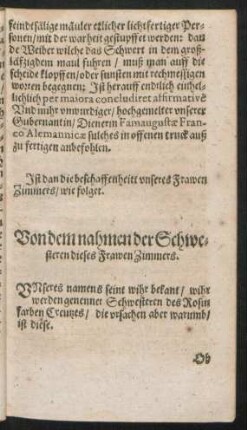 feindtsälige mäuler etlicher lichtfertiger Per-
sonen/mit der warheit gestupfft werden: dan
de Weiber wilche das Schwert in dem groß-
lässigdem maul fuhren / muß man auff die
scheide klopffen/oder sunsten mit rechmessigen
worten begegnen; Ist herauff endtlich einhel-
lichlich per maiora concludiret affirmativè
Und mihr unwurdiger / hochgemelter unserer
Gubernantin/ Dienerin Famaugustæ Fran-
co Alemannicæ sulches in offenen truck auß
zu fertigen anbefohlen.
Ist dan die beschaffenheitt unseres Frawen
Zimmers / wie folget.
Von dem nahmen der Schwe-
steren dieses Frawen Zimmers.
UNseres namens seint wihr bekant / wihr
werden genennet Schwesteren des Rosin
farben Creutzes / die ursachen aber warumb/
ist diese.
Ob